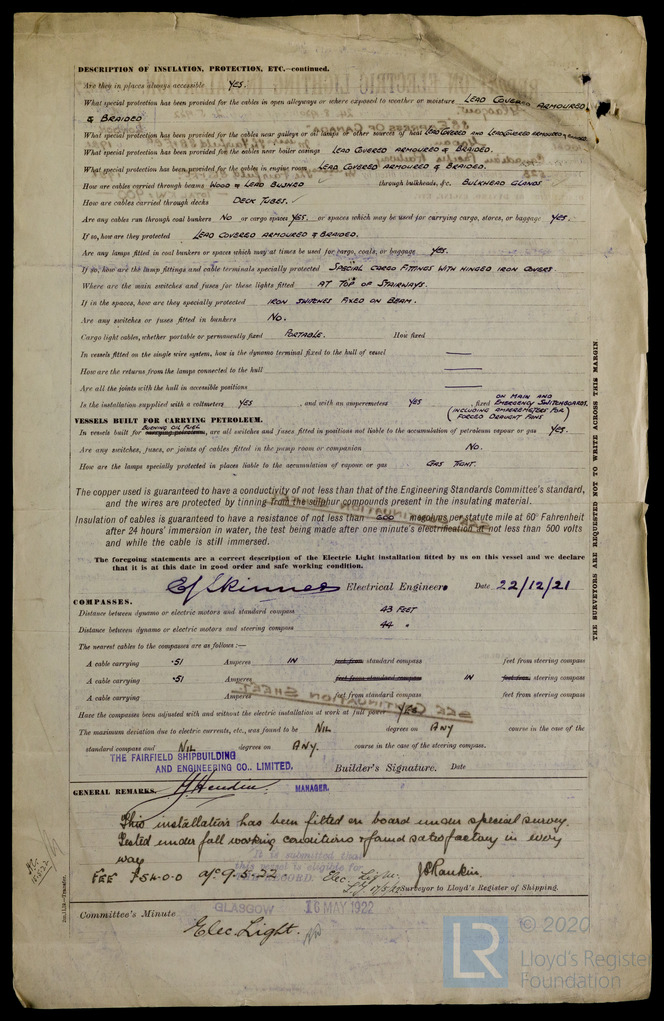 DESCRIPTION OF INSULATION, PROTECTION, ETC.—continued.
Are they in places always accessible YES.
What special protection has been provided for the cables in open alleyways or where exposed to weather or moisture LEAD COVERED ARMOURED
& BRAIDED
What special protection has been provided for the cables near galleys or oil lamps or other sources of heat LEAD COVERED AND LEAD COVERED ARMOURED &
What special protection has been provided for the cables near boiler casings LEAD COVERED ARMOURED & BRAIDED.
What special protection has been provided for the cables in engine room LEAD COVERED ARMOURED & BRAIDED.
How are cables carried through beams WOOD & LEAD BUSHED through bulkheads, &c. BULKHEAD GLANDS
How are cables carried through decks DECK TUBES.
Are any cables run through coal bunkers NO or cargo spaces YES. or spaces which may be used for carrying cargo, stores, or baggage YES.
If so, how are they protected LEAD COVERED ARMOURED & BRAIDED.
Are any lamps fitted in coal bunkers or spaces which may at times be used for cargo, coals, or baggage YES.
If so, how are the lamp fittings and cable terminals specially protected SPECIAL CARGO FITTINGS WITH HINGED IRON COVERS
Where are the main switches and fuses for these lights fitted AT TOP OF STAIRWAYS.
If in the spaces, how are they specially protected IRON SWITCHES FIXED ON BEAM.
Are any switches or fuses fitted in bunkers NO.
Cargo light cables, whether portable or permanently fixed PORTABLE. How fixed
In vessels fitted on the single wire system, how is the dynamo terminal fixed to the hull of vessel
How are the returns from the lamps connected to the hull
Are all the joints with the hull in accessible positions
ON MAIN AND
In the installation supplied with a voltmeter YES , and with an amperemeter YES , fixed EMERGENCY SWITCHBOARDS.
(INCLUDING AMPEREMETERS FOR
FORCED DRAUGHT FANS)
VESSELS BUILT FOR CARRYING PETROLEUM.
BURNING OIL FUEL
In vessels built for carrying petroleum, are all switches and fuses fitted in positions not liable to the accumulation of petroleum vapour or gas YES.
Are any switches, fuses, or joints of cables fitted in the pump room or companion NO.
How are the lamps specially protected in places liable to the accumulation of vapour or gas GAS TIGHT.
The copper used is guaranteed to have a conductivity of not less than that of the Engineering Standards Committee's standard,
and the wires are protected by tinning from the sulphur compounds present in the insulating material.
Insulation of cables is guaranteed to have a resistance of not less than 600 megohms per statute mile at 60° Fahrenheit
after 24 hours' immersion in water, the test being made after one minute's electrification at not less than 500 volts
and while the cable is still immersed.
The foregoing statements are a correct description of the Electric Light installation fitted by us on this vessel and we declare
that it is at this date in good order and safe working condition.
Skinner Electrical Engineers Date 22/12/21
COMPASSES.
Distance between dynamo or electric motors and standard compass 43 FEET
Distance between dynamo or electric motors and steering compass 44 "
The nearest cables to the compasses are as follows:—
A cable carrying .51 Amperes IN feet from standard compass feet from steering compass
A cable carrying .51 Amperes feet from standard compass IN feet from steering compass
A cable carrying Amperes feet from standard compass feet from steering compass
SEE CONTINUATION SHEET
Have the compasses been adjusted with and without the electric installation at work at full power YES
The maximum deviation due to electric currents, etc., was found to be NIL degrees on ANY course in the case of the
standard compass and NIL degrees on ANY. course in the case of the steering compass.
THE FAIRFIELD SHIPBUILDING
AND ENGINEERING CO., LIMITED. Builder's Signature. Date
GENERAL REMARKS. MANAGER.
This installation has been fitted on board under special survey.
Tested under full working conditions & found satisfactory in every
way
It is submitted that
this vessel is eligible for
RECORD. Elec. Light.
J Rankin
Surveyor to Lloyd's Register of Shipping.
Committee's Minute GLASGOW 16 MAY 1922
Elec. Light.
THE SURVEYORS ARE REQUESTED NOT TO WRITE ACROSS THIS MARGIN
© 2020
LR
Lloyd's Register
Foundation